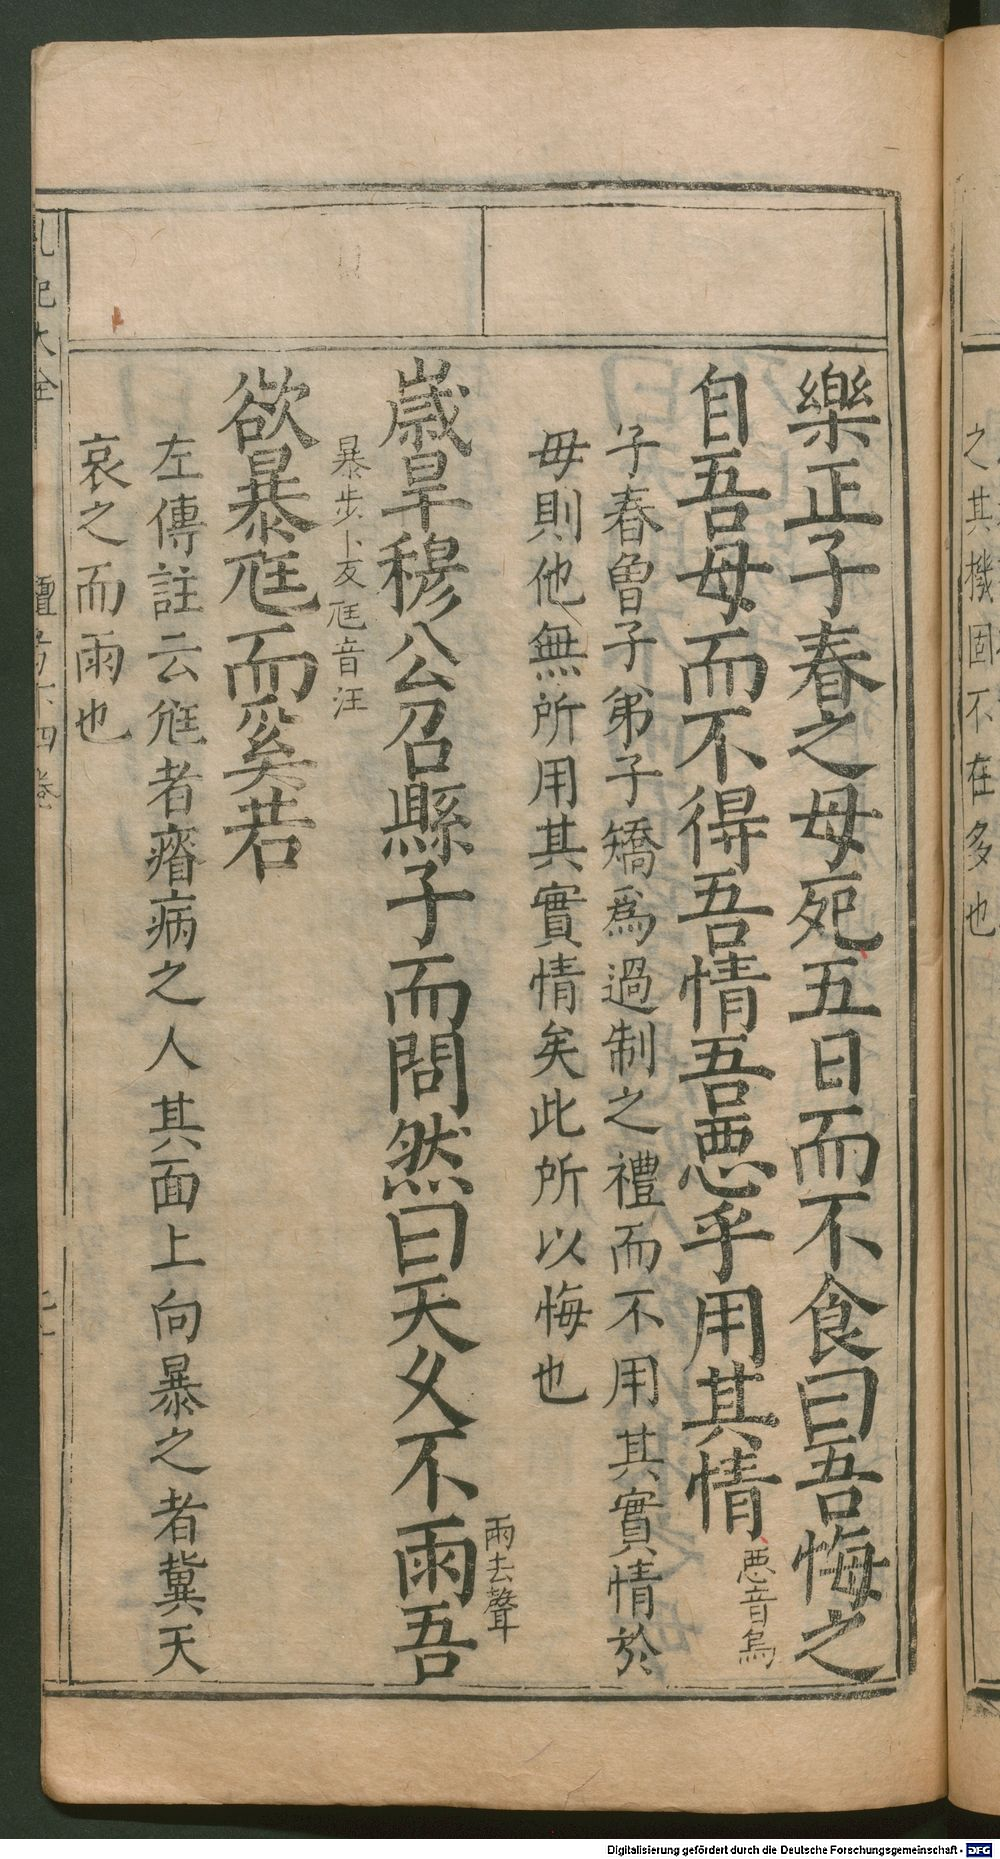 之其機固不在多也
樂正子春之母死五日而不食曰吾悔之
自吾母而不得吾情吾惡乎用其情
惡音烏
子春曾子弟子矯爲過制之禮而不用其實情於
母則他無所用其實情矣此所以悔也
歲旱穆公召縣子而問然曰天久不雨吾
雨去聲
暴步卜反尫音汪
欲暴尫而奚若
左傳註云尫者瘠病之人其面上向暴之者冀天
哀之而雨也
禮記大全
檀弓下四卷
Digitalisierung gefördert durch die Deutsche Forschungsgemeinschaft - DFG